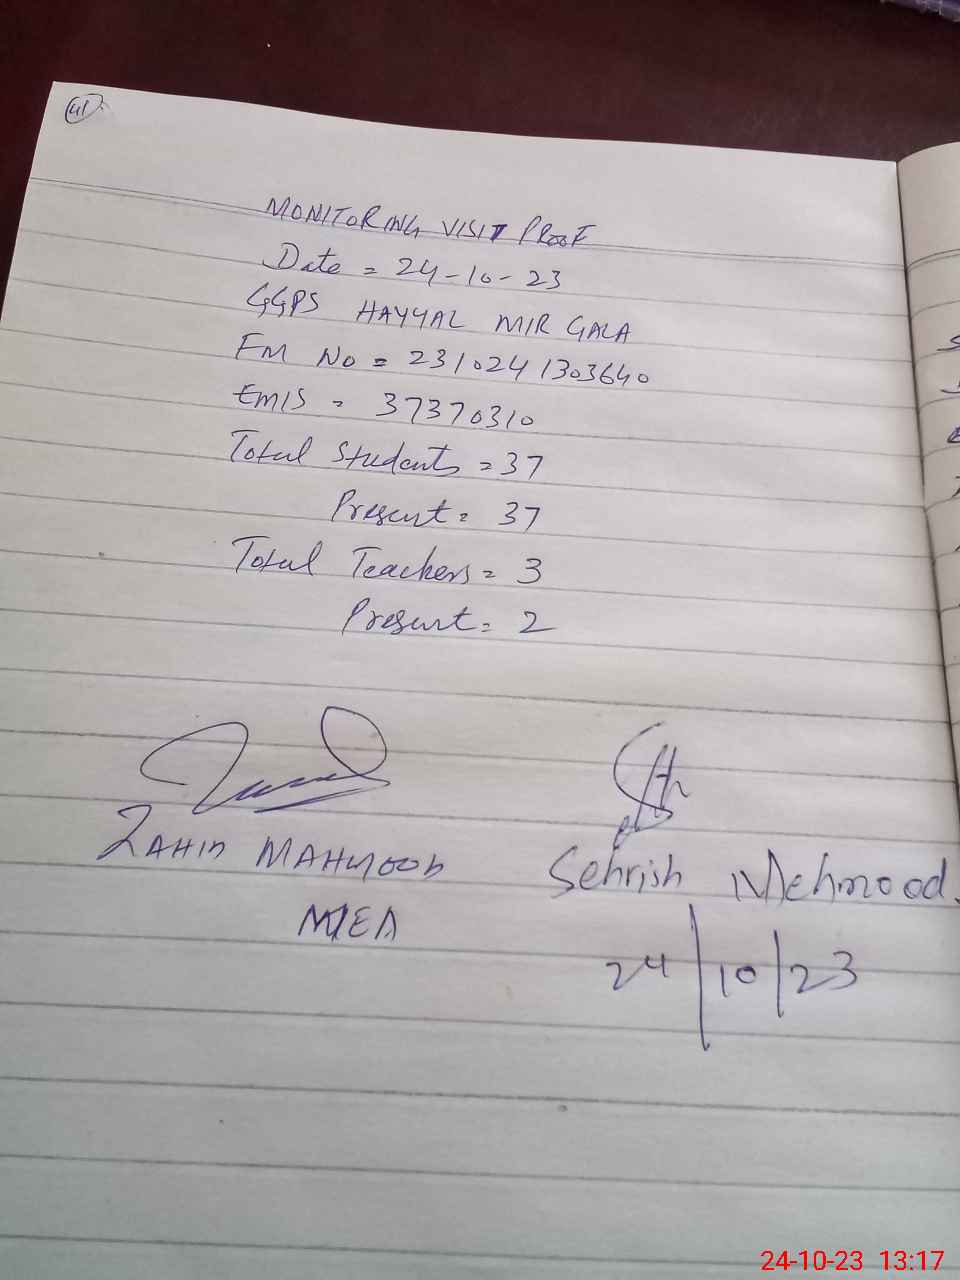 41
MONITORING VISIT PROOF
Date = 24-10-23
GGPS HAYYAL MIR GALA
FM No = 231024 1303640
EMIS = 37370310
Total Students = 37
Present = 37
Total Teachers = 3
Present = 2
ZAHID MAHMOOD
MEA
Sehrish Mehmood.
24/10/23
24-10-23 13:17